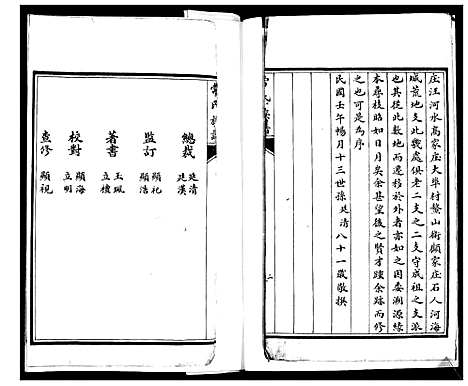 庄汪河水高家庄大年村鳌山衛顧家庄石人河海
城荒地支此數處俱老二支之二支守成祖之支派
也其從此數地而遷移於外者亦如之因委溯源緣
本尋枝昭如日月矣余甚望後之賢才踵余跡而修
之也可是為序
民國壬午暢月十三世孫廷清八十一歲敬撰
常氏族譜
二
常氏族譜
總裁 廷清 廷漢
監訂 顯祀 顯浩
著書 玉珮 立檀
校對 顯海 立明
查修 顯視